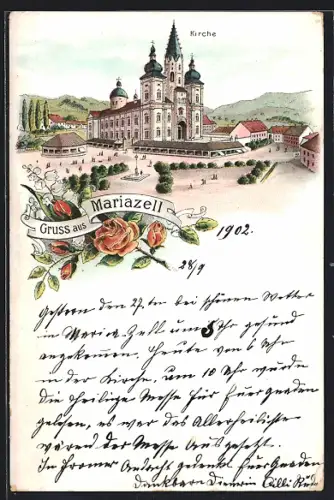 Kirche
Gruss aus Mariazell
1902.
28/9
Gestern den 27. bei schönem Wetter
in Maria-Zell um 5 Uhr gesund
angekommen. Heute von 6 Uhr
in der Kirche, um 10 Uhr wurde
die heilige Messe für Euer Gnaden
gelesen, es war das Allerheiligste
wärend der Messe Ausgesetzt.
In fromer Andacht gedenkt Euer Gnaden
Dankbare Dienerin Cilli